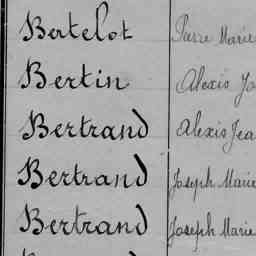 Bertelot Pierre Marie
Bertin Alexis Jo
Bertrand Alexis Jea
Bertrand Joseph Marie
Bertrand Joseph Marie